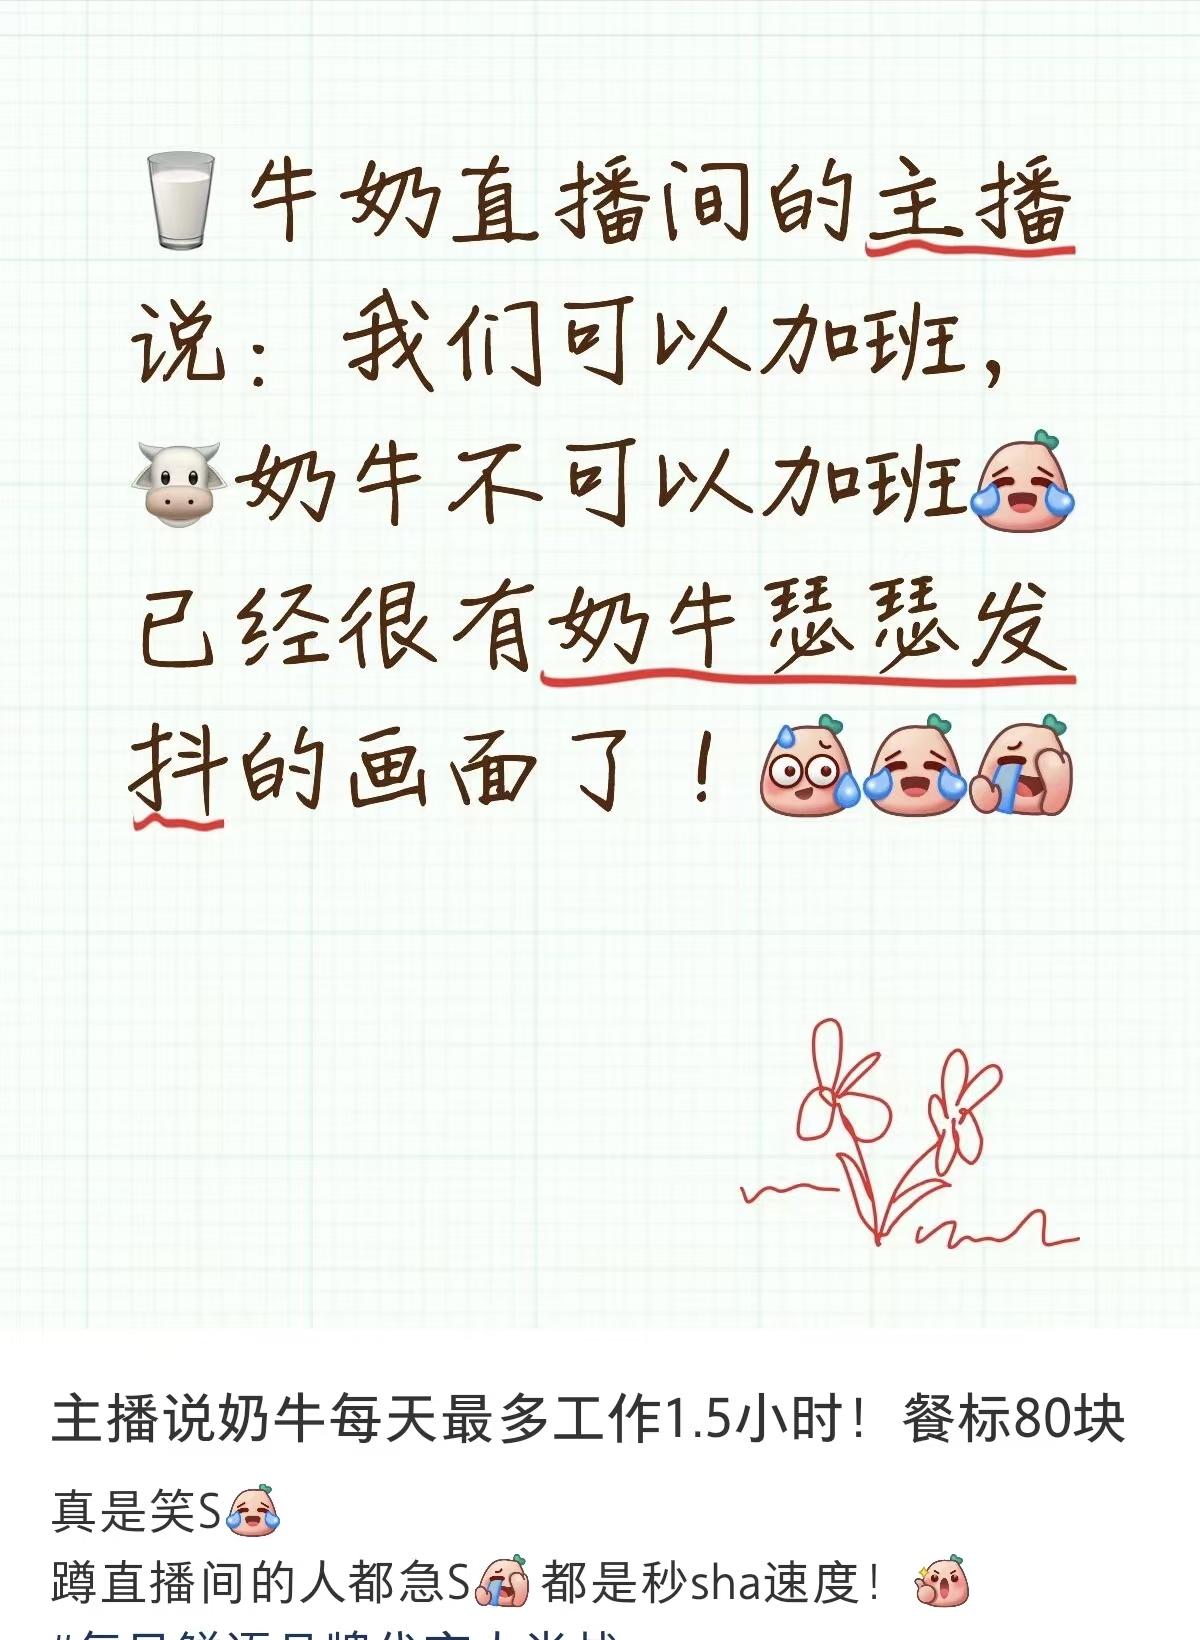 牛奶直播间的主播
说：我们可以加班，
奶牛不可以加班
已经很有奶牛瑟瑟发
抖的画面了！
主播说奶牛每天最多工作1.5小时！餐标80块
真是笑S
蹲直播间的人都急S 都是秒sha速度！